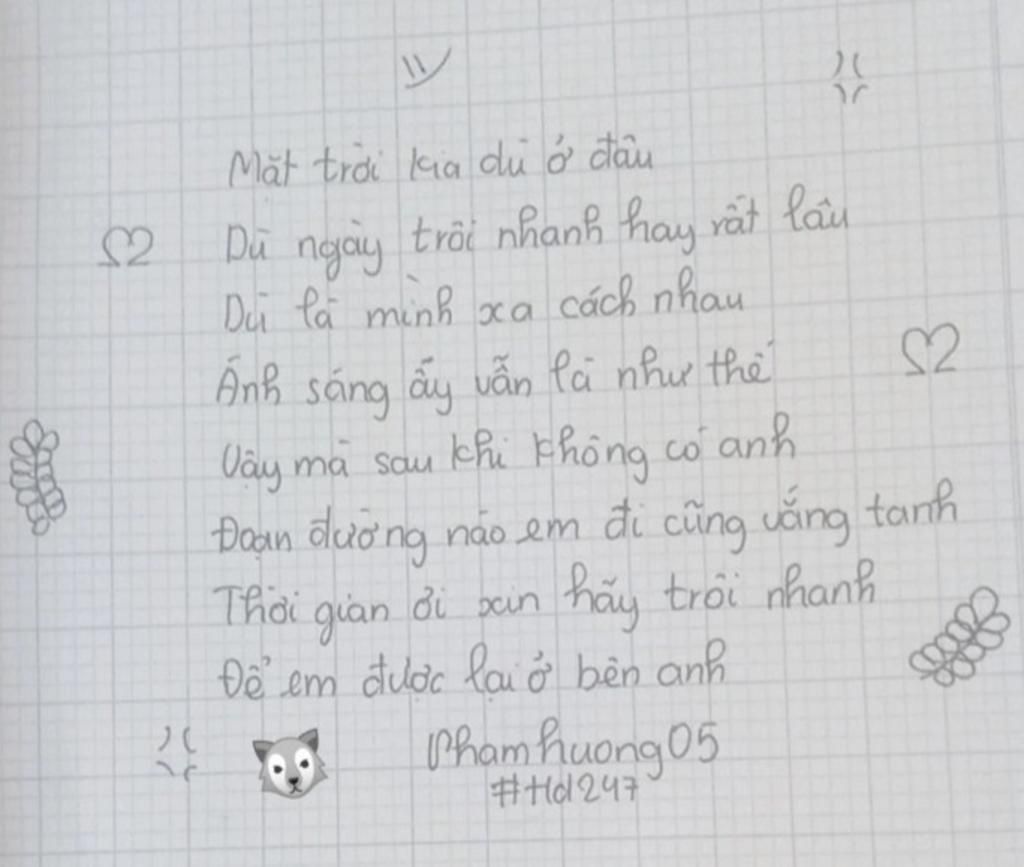 Mặt trời kia dù ở đâu
Dù ngày trôi nhanh hay rất lâu
Dù là mình xa cách nhau
Ánh sáng ấy vẫn là như thế
Vậy mà sau khi không có anh
Đoạn đường nào em đi cũng vắng tanh
Thời gian ơi xin hãy trôi nhanh
Để em được lại ở bên anh
Phamhuong05
#Hd247